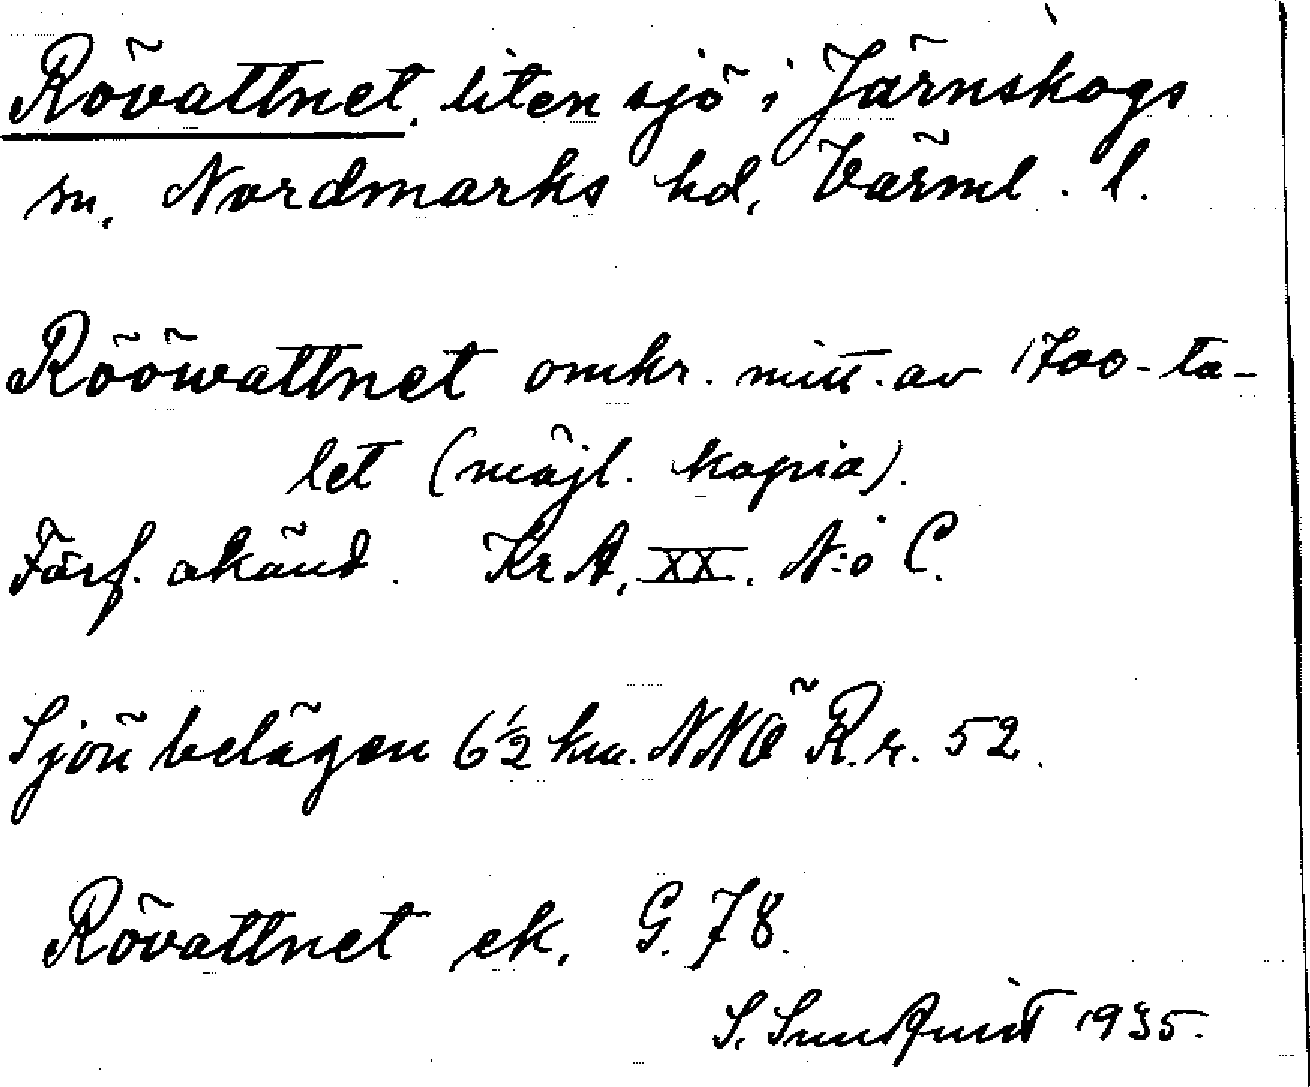 Rövattnet, liten sjö i Järnskogs
sn, Nordmarks hd, Värml. l.
Rööwattnet omkr. mitt. av 1700-ta-
let (möjl. kopia).
Förf. okänd. Kr A, XX. N:o C.
Sjön belägen 6½ km. NNÖ R.r. 52.
Rövattnet ek. G. 78.
S. Sundquist 1935.